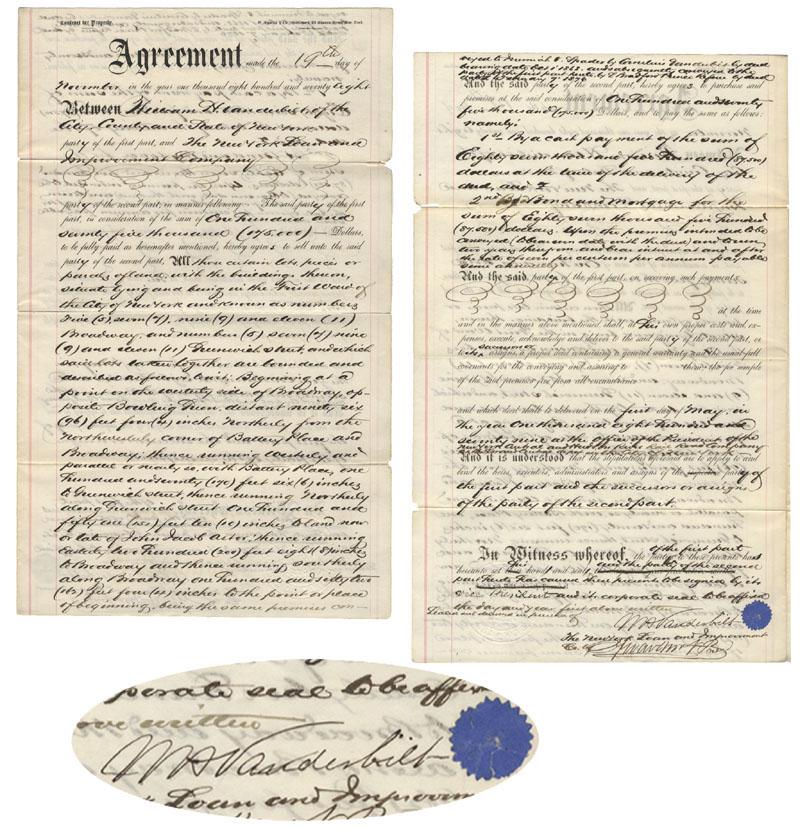 Contract for Property.
Agreement made the 19th day of
November in the year one thousand eight hundred and seventy eight
Between William H Vanderbilt of the
City, County and State of New York
party of the first part, and The New York Loan and
Improvement Company
party of the second part, in manner following: The said party of the first
part, in consideration of the sum of One Hundred and
seventy five thousand (175,000) Dollars,
to be fully paid as hereinafter mentioned, hereby agrees to sell unto the said
party of the second part, All those certain lots pieces or
parcels of land, with the buildings thereon,
situate lying and being in the First Ward of
the City of New York and known as numbers
Five (5), seven (7), nine (9) and eleven (11)
Broadway, and number (5) seven (7) nine
(9) and eleven (11) Greenwich Street, and which
said lots taken together are bounded and
described as follows, to wit: Beginning at a
point on the westerly side of Broadway, op-
posite Bowling Green, distant ninety six
(96) feet four (4) inches Northerly from the
Northwesterly corner of Battery Place and
Broadway; thence running Westerly and
parallel or nearly so, with Battery Place, one
Hundred and seventy (170) feet six (6) inches
to Greenwich Street, thence running Northerly
along Greenwich Street One Hundred and
fifty one (151) feet ten (10) inches to land now
or late of John Jacob Astor, thence running
Easterly two Hundred (200) feet eight (8) inches
to Broadway and thence running southerly
along Broadway one Hundred and sixty two
(162) feet four (4) inches to the point or place
of beginning, being the same premises con-
And the said party of the second part, hereby agrees to purchase said
premises at the said consideration of One Hundred and seventy
five thousand (175,000) Dollars, and to pay the same as follows:
namely:
1st By a cash payment of the sum of
Eighty seven thousand and five Hundred (87,500)
dollars at the time of the delivery of the
deed, and
2nd Bond and Mortgage for the
sum of Eighty seven thousand five Hundred
(87,500) dollars. Upon the premises intended to be
conveyed (to bear even date with the deed) and to run
two years thereupon and bear interest at and after
the rate of seven per centum per annum payable
semi annually
And the said party of the first part, on receiving such payments
at the time
and in the manner above mentioned, shall, at his own proper costs and ex-
penses, execute, acknowledge and deliver to the said party of the second part, or
to its assigns, a proper deed containing a general warranty and the usual full
covenants for the conveying and assuring to them the fee simple
of the said premises free from all encumbrance
and which deed shall be delivered on the first day of May, in
the year One thousand Eight Hundred and
seventy nine at the office of the President of the
And it is understood that the stipulations aforesaid are to apply to and
bind the heirs, executors, administrators and assigns of the party of
the first part and the successors or assigns
of the party of the second part.
In Witness whereof, the party of the first part to these presents has
hereunto set his hand and seal and the party of the second
part has caused these presents to be signed by its
vice President and its corporate seal to be affixed
the day and year first above written
Sealed and delivered in presence of
W H Vanderbilt
The New York Loan and Improvement
Co. by
porate seal to be affix
ove written
W H Vanderbilt
Loan and Improvem